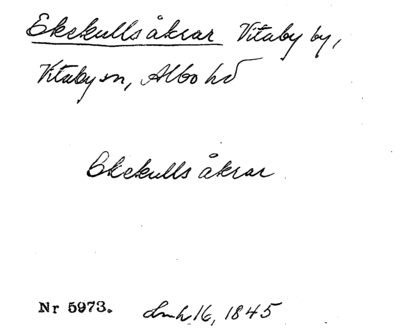 Ekekulls åkrar Vitaby by,
Vitaby sn, Albo hd
Ekekulls åkrar
Nr 5973. Lmh 16, 1845